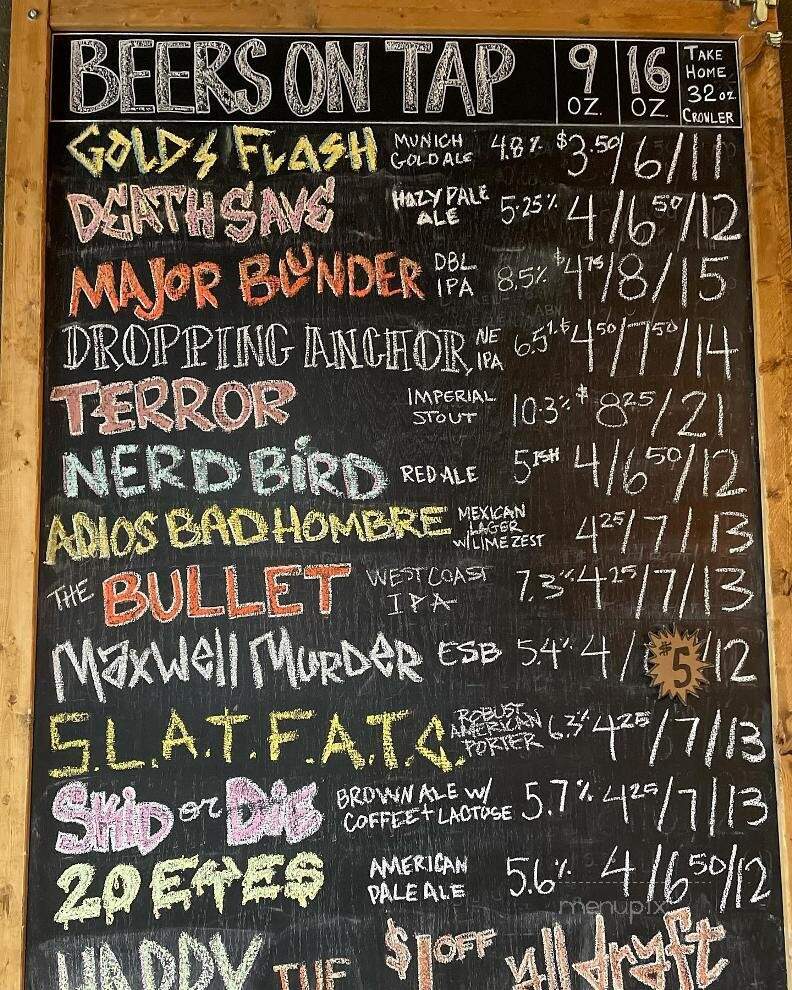 BEERS ON TAP 9 OZ. 16 OZ. TAKE HOME 32 OZ CROWLER
GOLDS FLASH MUNICH GOLD ALE 4.8% $3.50/6/11
DEATH SAVE HAZY PALE ALE 5.25% 4/6 50/12
MAJOR BLUNDER DBL IPA 8.5% $4 75/8/15
DROPPING ANCHOR NE IPA 6.5% $4 50/7 50/14
TERROR IMPERIAL STOUT 10.3% $8 25/21
NERD BIRD RED ALE 5ISH 4/6 50/12
ADIOS BAD HOMBRE MEXICAN LAGER W/LIME ZEST 4 25/7/13
THE BULLET WEST COAST IPA 7.3% 4 25/7/13
MAXWELL MURDER ESB 5.4% 4/ $5 /12
S.L.A.T.F.A.T.C. ROBUST AMERICAN PORTER 6.3% 4 25/7/13
SKID or DIE BROWN ALE W/ COFFEE + LACTOSE 5.7% 4 25/7/13
20 EYES AMERICAN PALE ALE 5.6% 4/6 50/12
menupix
HAPPY $1 OFF all draft